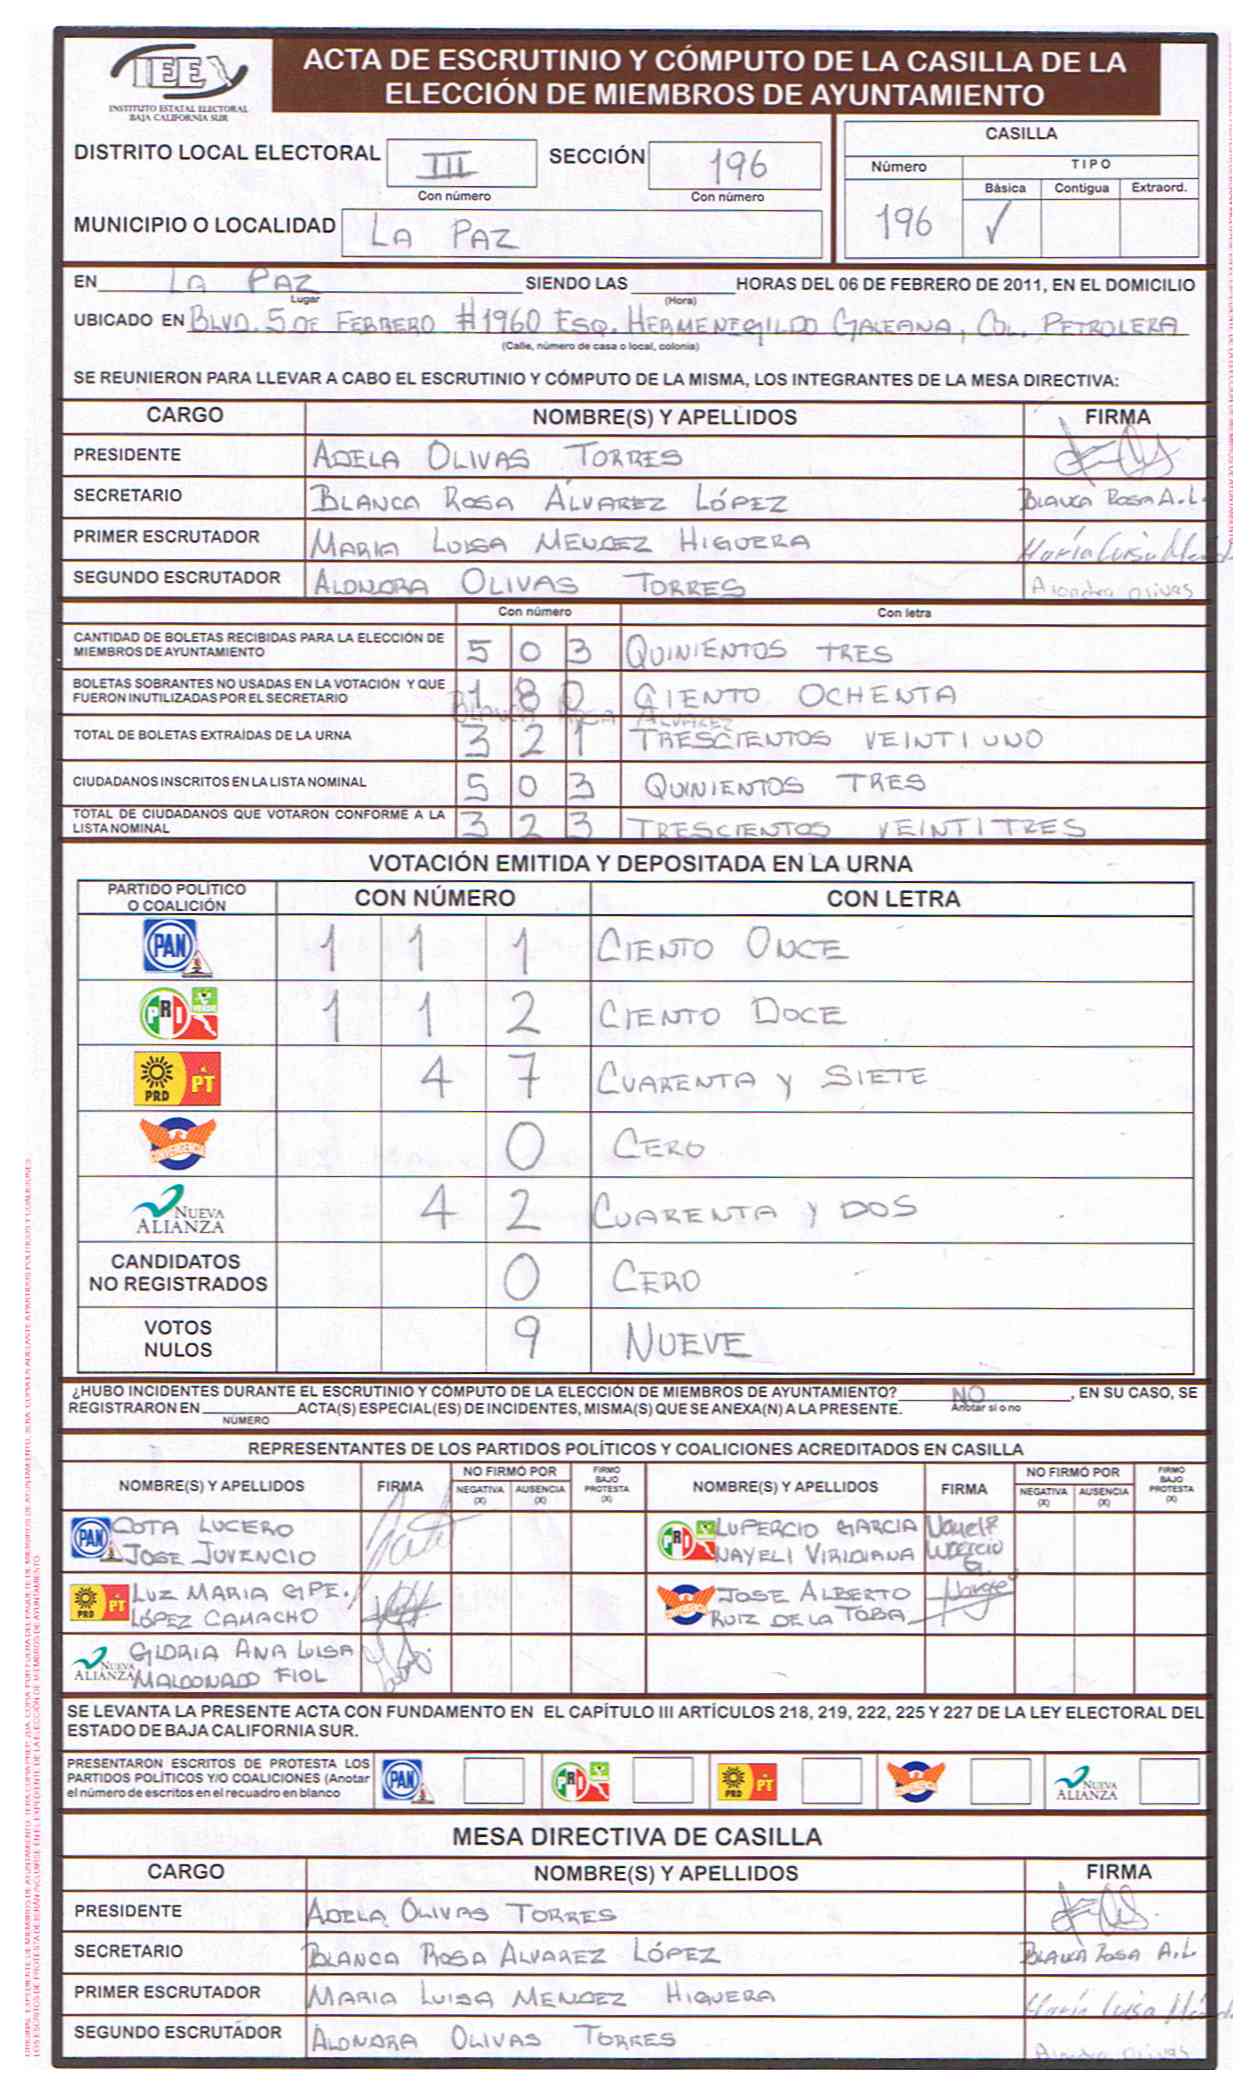 IEE
INSTITUTO ESTATAL ELECTORAL
BAJA CALIFORNIA SUR
ACTA DE ESCRUTINIO Y CÓMPUTO DE LA CASILLA DE LA
ELECCIÓN DE MIEMBROS DE AYUNTAMIENTO
DISTRITO LOCAL ELECTORAL III SECCIÓN 196
Con número Con número
MUNICIPIO O LOCALIDAD LA PAZ
CASILLA
Número TIPO
Básica Contigua Extraord.
196 ✓
EN LA PAZ SIENDO LAS HORAS DEL 06 DE FEBRERO DE 2011, EN EL DOMICILIO
Lugar (Hora)
UBICADO EN BLVD. 5 DE FEBRERO #1960 ESQ. HERMENEGILDO GALEANA, COL. PETROLERA
(Calle, número de casa o local, colonia)
SE REUNIERON PARA LLEVAR A CABO EL ESCRUTINIO Y CÓMPUTO DE LA MISMA, LOS INTEGRANTES DE LA MESA DIRECTIVA:
CARGO NOMBRE(S) Y APELLIDOS FIRMA
PRESIDENTE ADELA OLIVAS TORRES
SECRETARIO BLANCA ROSA ÁLVAREZ LÓPEZ BLANCA ROSA A.L.
PRIMER ESCRUTADOR MARIA LUISA MENDEZ HIGUERA María Luisa
SEGUNDO ESCRUTADOR ALONDRA OLIVAS TORRES Alondra Olivas
Con número Con letra
CANTIDAD DE BOLETAS RECIBIDAS PARA LA ELECCIÓN DE
MIEMBROS DE AYUNTAMIENTO 5 0 3 QUINIENTOS TRES
BOLETAS SOBRANTES NO USADAS EN LA VOTACIÓN Y QUE
FUERON INUTILIZADAS POR EL SECRETARIO 1 8 0 CIENTO OCHENTA
BLANCA ROSA ALVAREZ
TOTAL DE BOLETAS EXTRAÍDAS DE LA URNA 3 2 1 TRESCIENTOS VEINTIUNO
CIUDADANOS INSCRITOS EN LA LISTA NOMINAL 5 0 3 QUINIENTOS TRES
TOTAL DE CIUDADANOS QUE VOTARON CONFORME A LA
LISTA NOMINAL 3 2 3 TRESCIENTOS VEINTITRES
VOTACIÓN EMITIDA Y DEPOSITADA EN LA URNA
PARTIDO POLÍTICO
O COALICIÓN CON NÚMERO CON LETRA
PAN 1 1 1 CIENTO ONCE
PRI VERDE 1 1 2 CIENTO DOCE
PRD PT 4 7 CUARENTA Y SIETE
CONVERGENCIA 0 CERO
NUEVA
ALIANZA 4 2 CUARENTA Y DOS
CANDIDATOS
NO REGISTRADOS 0 CERO
VOTOS
NULOS 9 NUEVE
¿HUBO INCIDENTES DURANTE EL ESCRUTINIO Y CÓMPUTO DE LA ELECCIÓN DE MIEMBROS DE AYUNTAMIENTO? NO, EN SU CASO, SE
Anotar si o no
REGISTRARON EN ACTA(S) ESPECIAL(ES) DE INCIDENTES, MISMA(S) QUE SE ANEXA(N) A LA PRESENTE.
NÚMERO
REPRESENTANTES DE LOS PARTIDOS POLÍTICOS Y COALICIONES ACREDITADOS EN CASILLA
NOMBRE(S) Y APELLIDOS FIRMA NO FIRMÓ POR FIRMÓ BAJO PROTESTA (X) NOMBRE(S) Y APELLIDOS FIRMA NO FIRMÓ POR FIRMÓ BAJO PROTESTA (X)
NEGATIVA (X) AUSENCIA (X) NEGATIVA (X) AUSENCIA (X)
PAN COTA LUCERO
JOSE JUVENCIO
PRI LUPERCIO GARCIA
NAYELI VIRIDIANA
Nayeli
Lupercio
G.
PRD PT LUZ MARIA GPE.
LÓPEZ CAMACHO
JOSE ALBERTO
RUIZ DE LA TOBA
NUEVA
ALIANZA GLORIA ANA LUISA
MALDONADO FIOL
SE LEVANTA LA PRESENTE ACTA CON FUNDAMENTO EN EL CAPÍTULO III ARTÍCULOS 218, 219, 222, 225 Y 227 DE LA LEY ELECTORAL DEL
ESTADO DE BAJA CALIFORNIA SUR.
PRESENTARON ESCRITOS DE PROTESTA LOS
PARTIDOS POLÍTICOS Y/O COALICIONES (Anotar
el número de escritos en el recuadro en blanco
PAN PRI PRD PT NUEVA
ALIANZA
MESA DIRECTIVA DE CASILLA
CARGO NOMBRE(S) Y APELLIDOS FIRMA
PRESIDENTE ADELA OLIVAS TORRES
SECRETARIO BLANCA ROSA ALVAREZ LÓPEZ BLANCA ROSA A.L
PRIMER ESCRUTADOR MARIA LUISA MENDEZ HIGUERA María Luisa
SEGUNDO ESCRUTADOR ALONDRA OLIVAS TORRES Alondra Olivas